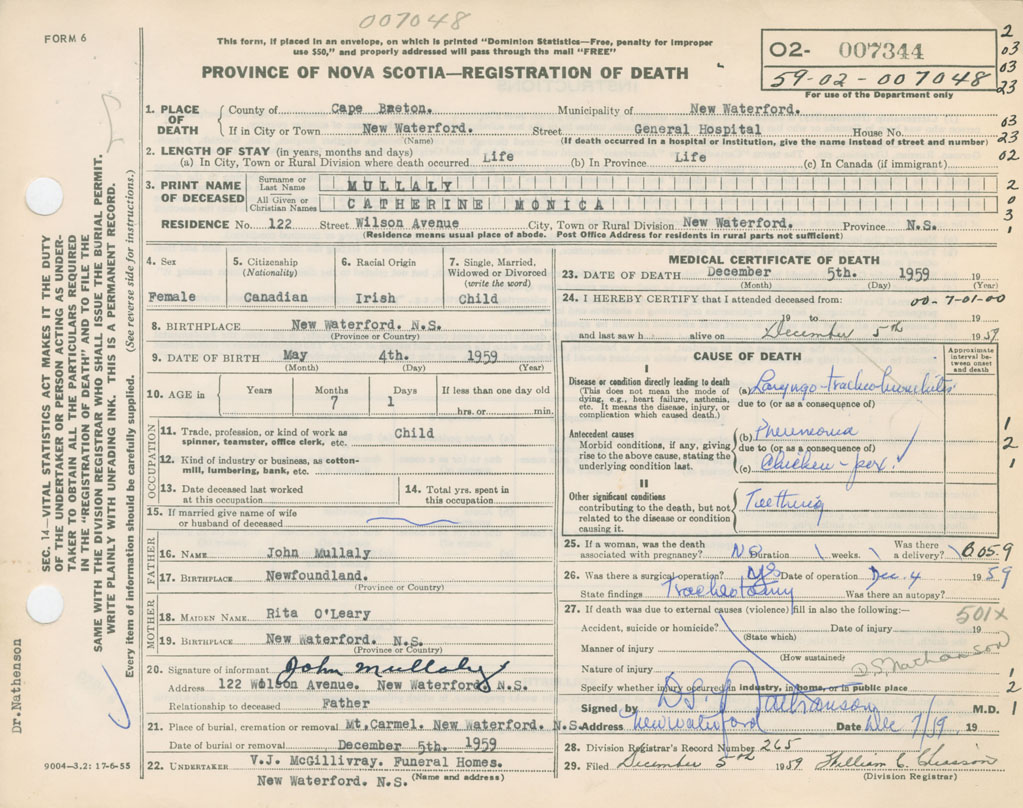 007048
FORM 6
This form, if placed in an envelope, on which is printed "Dominion Statistics—Free, penalty for improper
use $50," and properly addressed will pass through the mail "FREE"
PROVINCE OF NOVA SCOTIA—REGISTRATION OF DEATH
O2- 007344
59-02-007048
For use of the Department only
2
03
03
23
03
23
02
2
0
3
1
SEC. 14—VITAL STATISTICS ACT MAKES IT THE DUTY
OF THE UNDERTAKER OR PERSON ACTING AS UNDER-
TAKER TO OBTAIN ALL THE PARTICULARS REQUIRED
IN THE "REGISTRATION OF DEATH" AND TO FILE THE
SAME WITH THE DIVISION REGISTRAR WHO SHALL ISSUE THE BURIAL PERMIT.
WRITE PLAINLY WITH UNFADING INK. THIS IS A PERMANENT RECORD.
Every item of information should be carefully supplied. (See reverse side for instructions.)
Dr.Nathenson
1. PLACE OF DEATH County of Cape Breton. Municipality of New Waterford.
If in City or Town New Waterford. Street General Hospital House No.
(Name) (If death occurred in a hospital or institution, give the name instead of street and number)
2. LENGTH OF STAY (in years, months and days)
(a) In City, Town or Rural Division where death occurred Life (b) In Province Life (c) In Canada (if immigrant)
3. PRINT NAME OF DECEASED Surname or Last Name MULLALY
All Given or Christian Names CATHERINE MONICA
RESIDENCE No. 122 Street Wilson Avenue City, Town or Rural Division New Waterford. Province N.S.
(Residence means usual place of abode. Post Office Address for residents in rural parts not sufficient)
4. Sex 5. Citizenship (Nationality) 6. Racial Origin 7. Single, Married, Widowed or Divorced (write the word)
Female Canadian Irish Child
8. BIRTHPLACE New Waterford. N.S.
(Province or Country)
9. DATE OF BIRTH May 4th. 1959
(Month) (Day) (Year)
10. AGE in Years Months Days If less than one day old
7 1 hrs. or min.
OCCUPATION
11. Trade, profession, or kind of work as spinner, teamster, office clerk, etc. Child
12. Kind of industry or business, as cotton-mill, lumbering, bank, etc.
13. Date deceased last worked at this occupation 14. Total yrs. spent in this occupation
15. If married give name of wife or husband of deceased
FATHER
16. NAME John Mullaly
17. BIRTHPLACE Newfoundland.
(Province or Country)
MOTHER
18. MAIDEN NAME Rita O'Leary
19. BIRTHPLACE New Waterford. N.S.
(Province or Country)
20. Signature of informant John Mullaly
Address 122 Wilson Avenue. New Waterford. N.S.
Relationship to deceased Father
21. Place of burial, cremation or removal Mt.Carmel. New Waterford. N.S.
Date of burial or removal December 5th. 1959
22. UNDERTAKER V.J. McGillivray. Funeral Homes.
New Waterford. N.S. (Name and address)
9004-3,2: 17-6-55
MEDICAL CERTIFICATE OF DEATH
23. DATE OF DEATH December 5th. 1959 19
(Month) (Day) (Year)
24. I HEREBY CERTIFY that I attended deceased from: 00-7-01-00
19 to 19
and last saw h alive on December 5th 1959
CAUSE OF DEATH
Approximate interval between onset and death
I
Disease or condition directly leading to death
(This does not mean the mode of dying, e.g., heart failure, asthenia, etc. It means the disease, injury, or complication which caused death.)
(a) Laryngo-tracheo-bronchitis
due to (or as a consequence of)
Antecedent causes
Morbid conditions, if any, giving rise to the above cause, stating the underlying condition last.
(b) Pneumonia
due to (or as a consequence of)
(c) Chicken-pox
1
2
1
II
Other significant conditions
contributing to the death, but not related to the disease or condition causing it.
Teething
25. If a woman, was the death associated with pregnancy? No Duration weeks. Was there a delivery? B 05.9
26. Was there a surgical operation? yes Date of operation Dec. 4 1959
State findings Tracheotomy Was there an autopsy?
27. If death was due to external causes (violence) fill in also the following:— 501x
Accident, suicide or homicide? Date of injury 19
(State which)
Manner of injury
(How sustained)
Nature of injury D.S. Nathanson
Specify whether injury occurred in industry, in home, or in public place 1
2
Signed by D.S. Nathanson M.D. 1
Address New Waterford Date Dec 7/59 19
28. Division Registrar's Record Number 265
29. Filed December 5th 1959 William C. Chiasson
(Division Registrar)